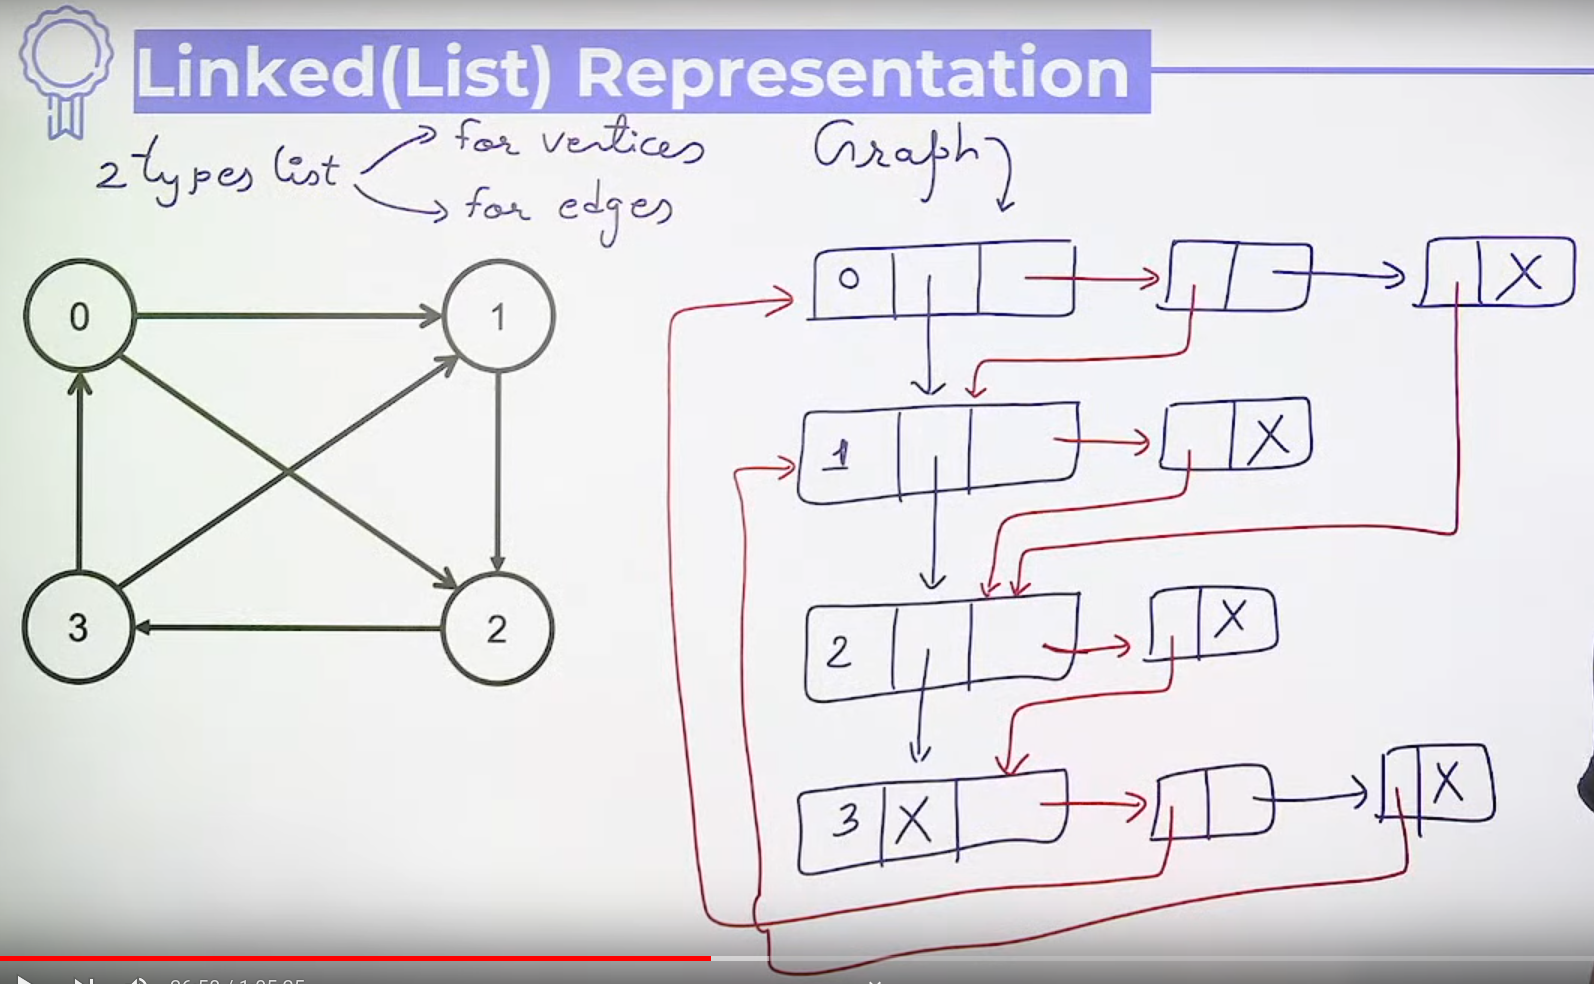 Linked(List) Representation
2 types list
for vertices
for edges
Graph
0
1
3
2
0
X
1
X
2
X
3
X
X